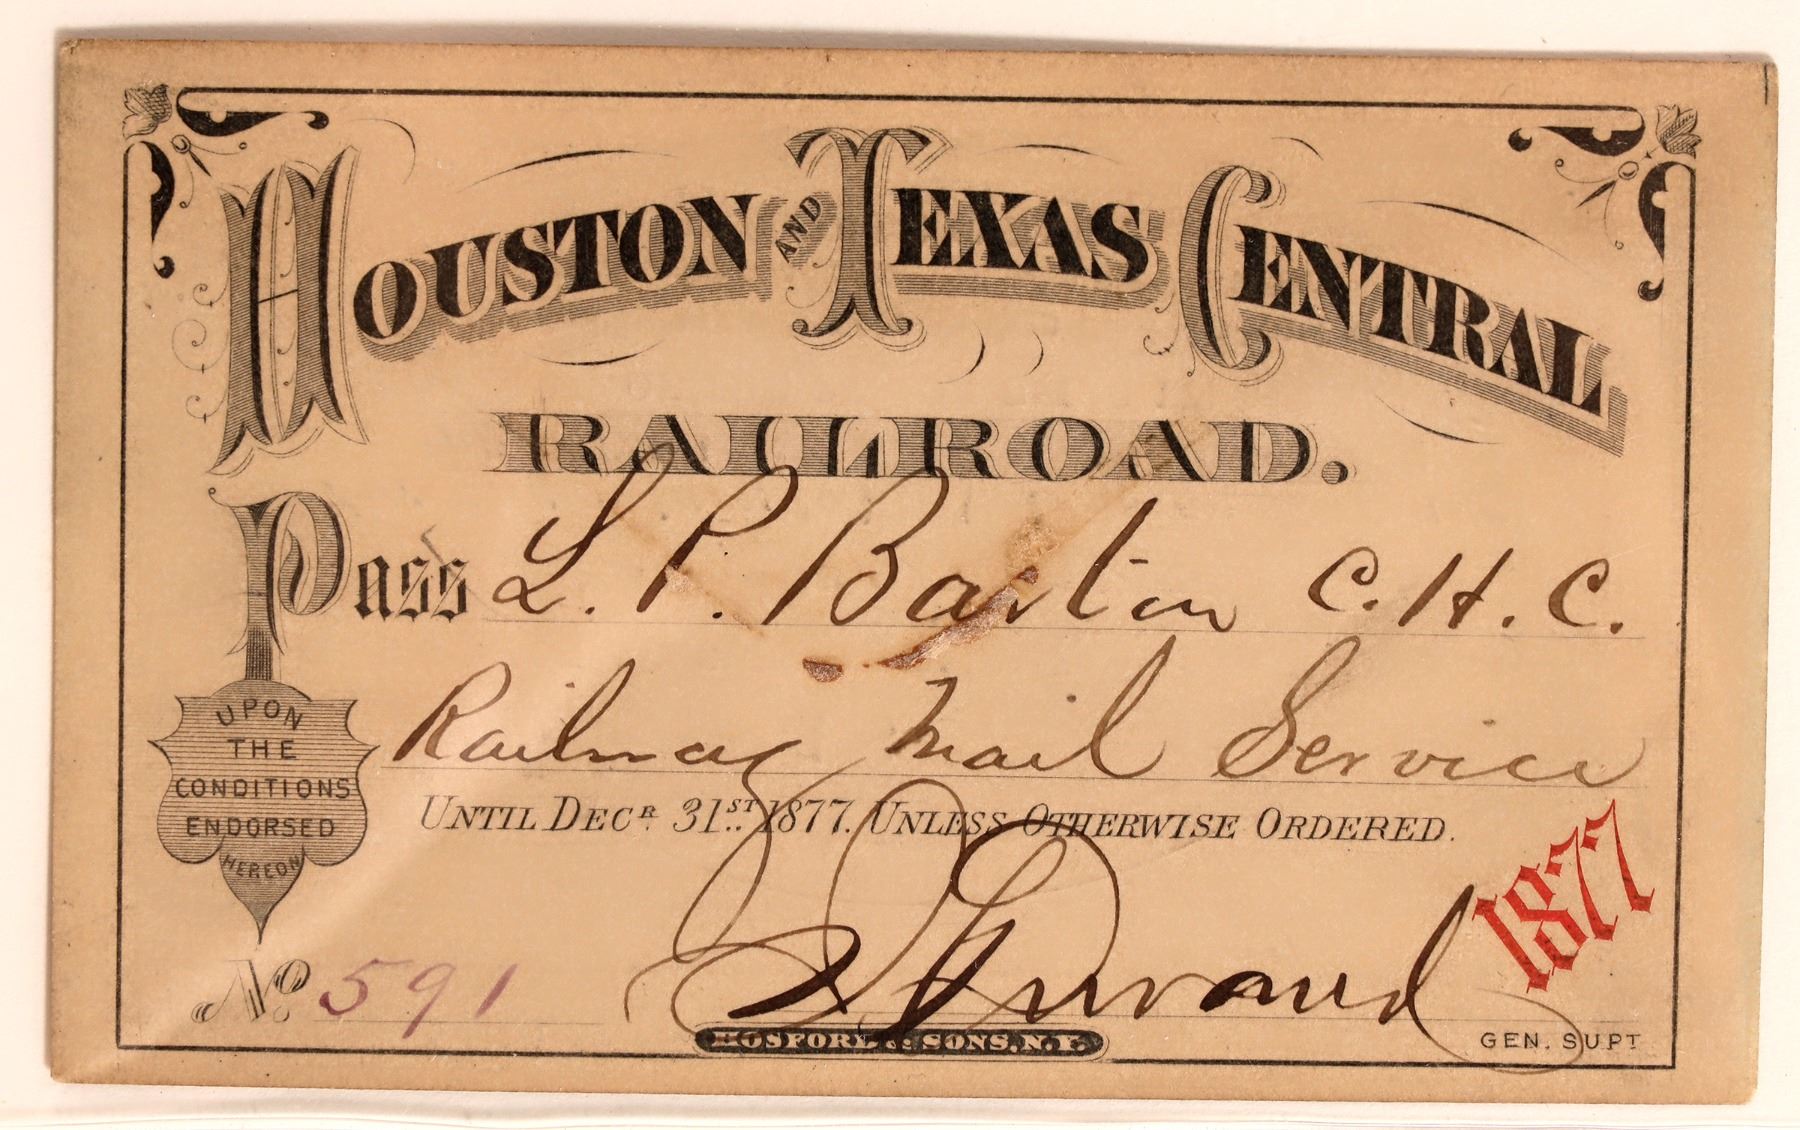 HOUSTON AND TEXAS CENTRAL
RAILROAD.
Pass L. P. Barton C. H. C.
Railway Mail Service
UPON
THE
CONDITIONS
ENDORSED
HEREON
UNTIL DECR. 31ST. 1877. UNLESS OTHERWISE ORDERED.
1877
No. 591
J. Durand
GEN. SUPT
HOSFORD & SONS. N.Y.